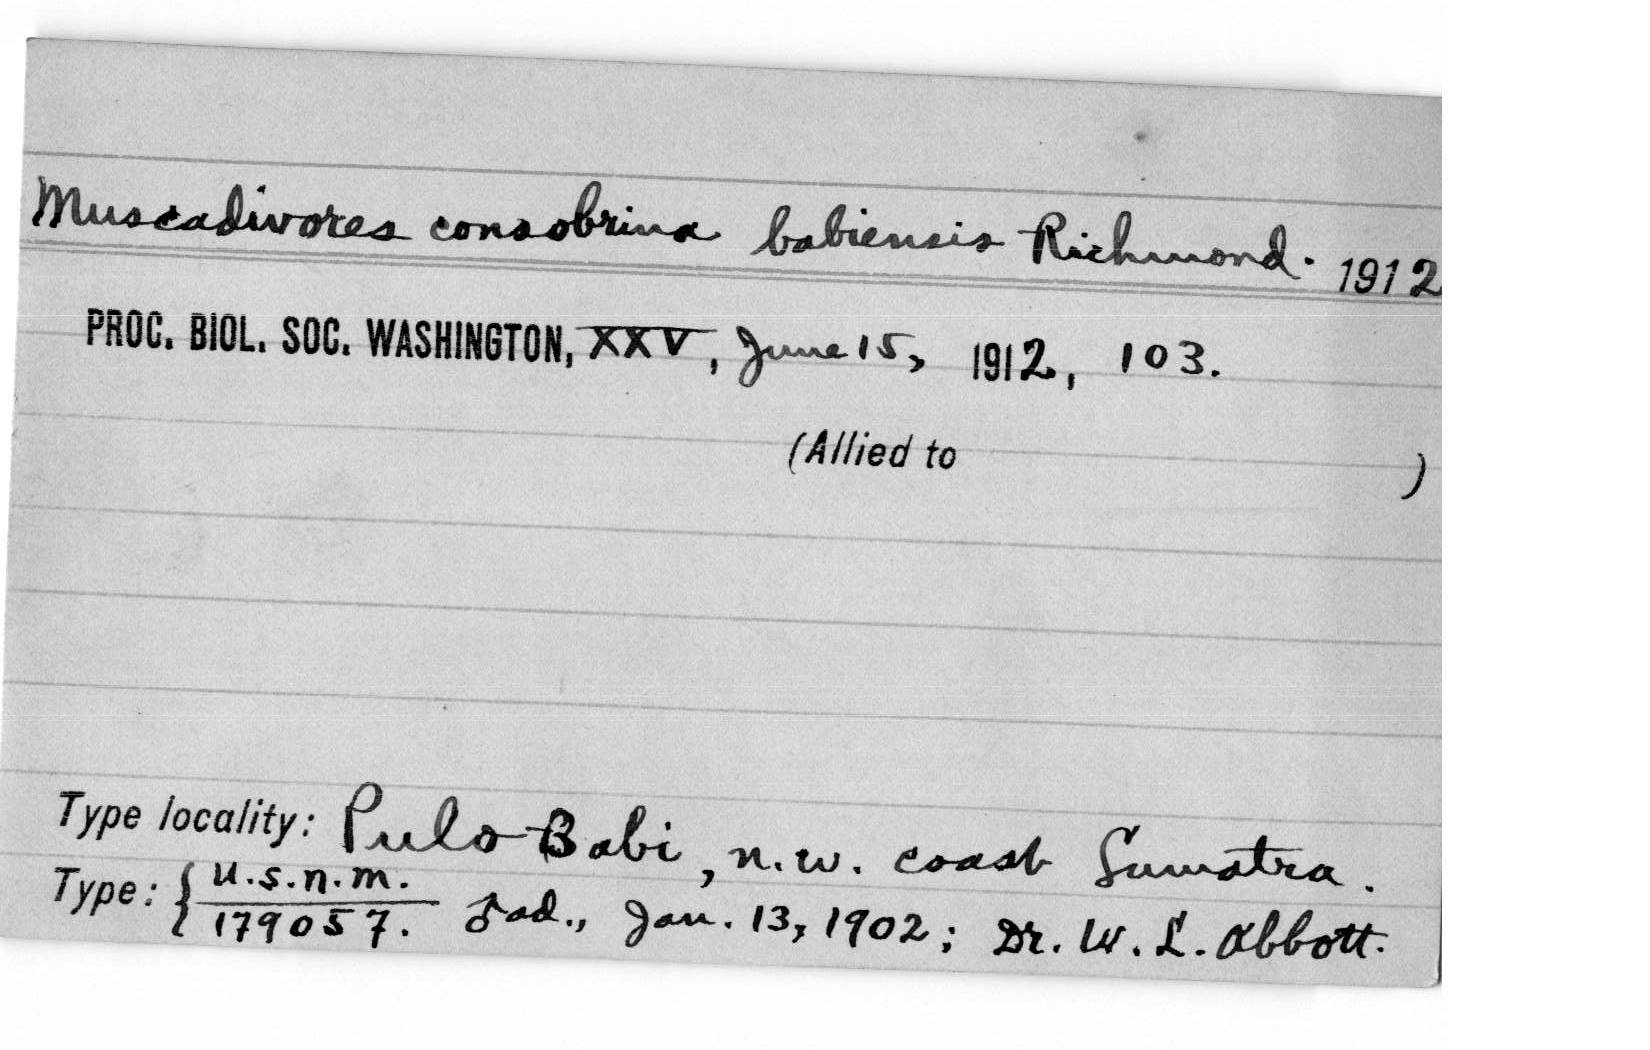 Muscadivores consobrina babiensis Richmond. 1912
PROC. BIOL. SOC. WASHINGTON, XXV, June 15, 1912, 103.
(Allied to )
Type locality: Pulo Babi, n.w. coast Sumatra.
Type: { U.S.N.M.
179057. ♂ ad., Jan. 13, 1902; Dr. W. L. Abbott.